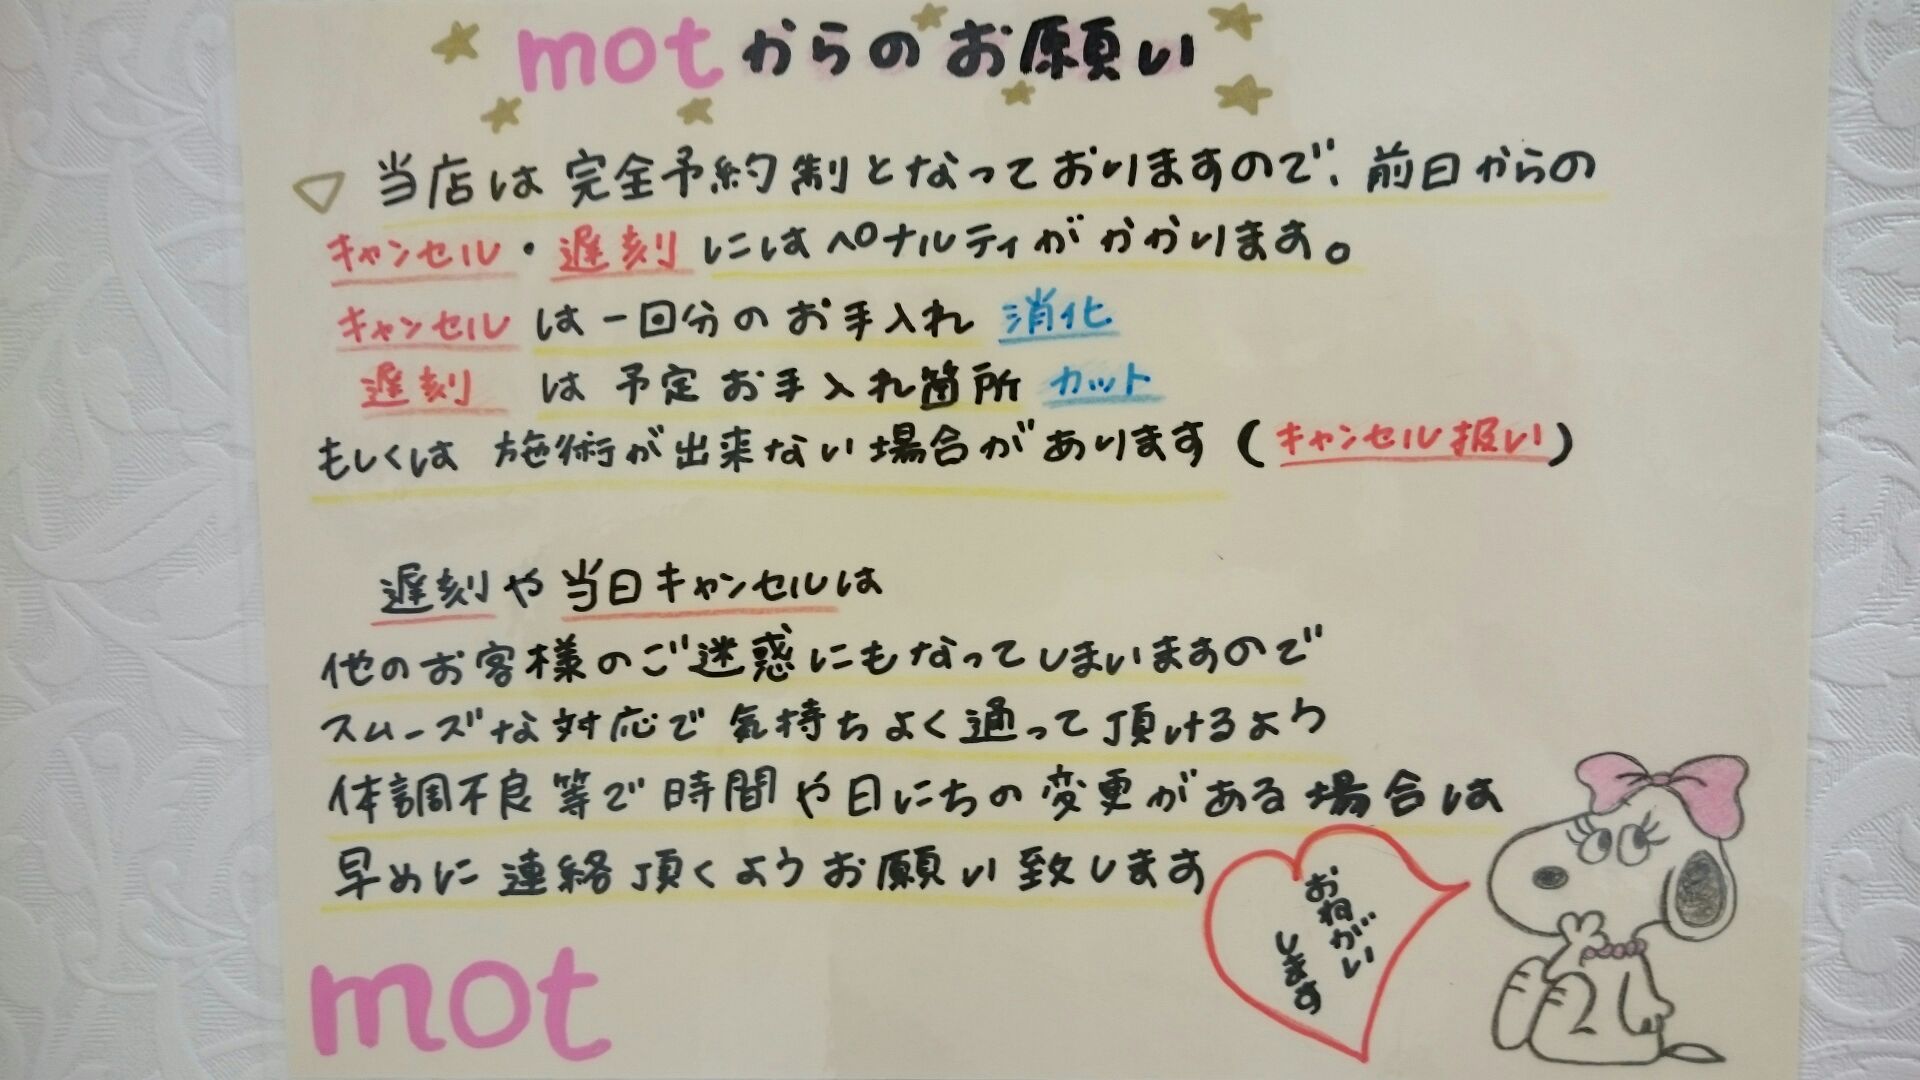 motからのお願い
▽当店は完全予約制となっておりますので、前日からの
キャンセル・遅刻にはペナルティがかかります。
キャンセルは一回分のお手入れ消化
遅刻は予定お手入れ箇所カット
もしくは施術が出来ない場合があります(キャンセル扱い)
遅刻や当日キャンセルは
他のお客様のご迷惑にもなってしまいますので
スムーズな対応で気持ちよく通って頂けるよう
体調不良等で時間や日にちの変更がある場合は
早めに連絡頂くようお願い致します
おねがい
します
mot